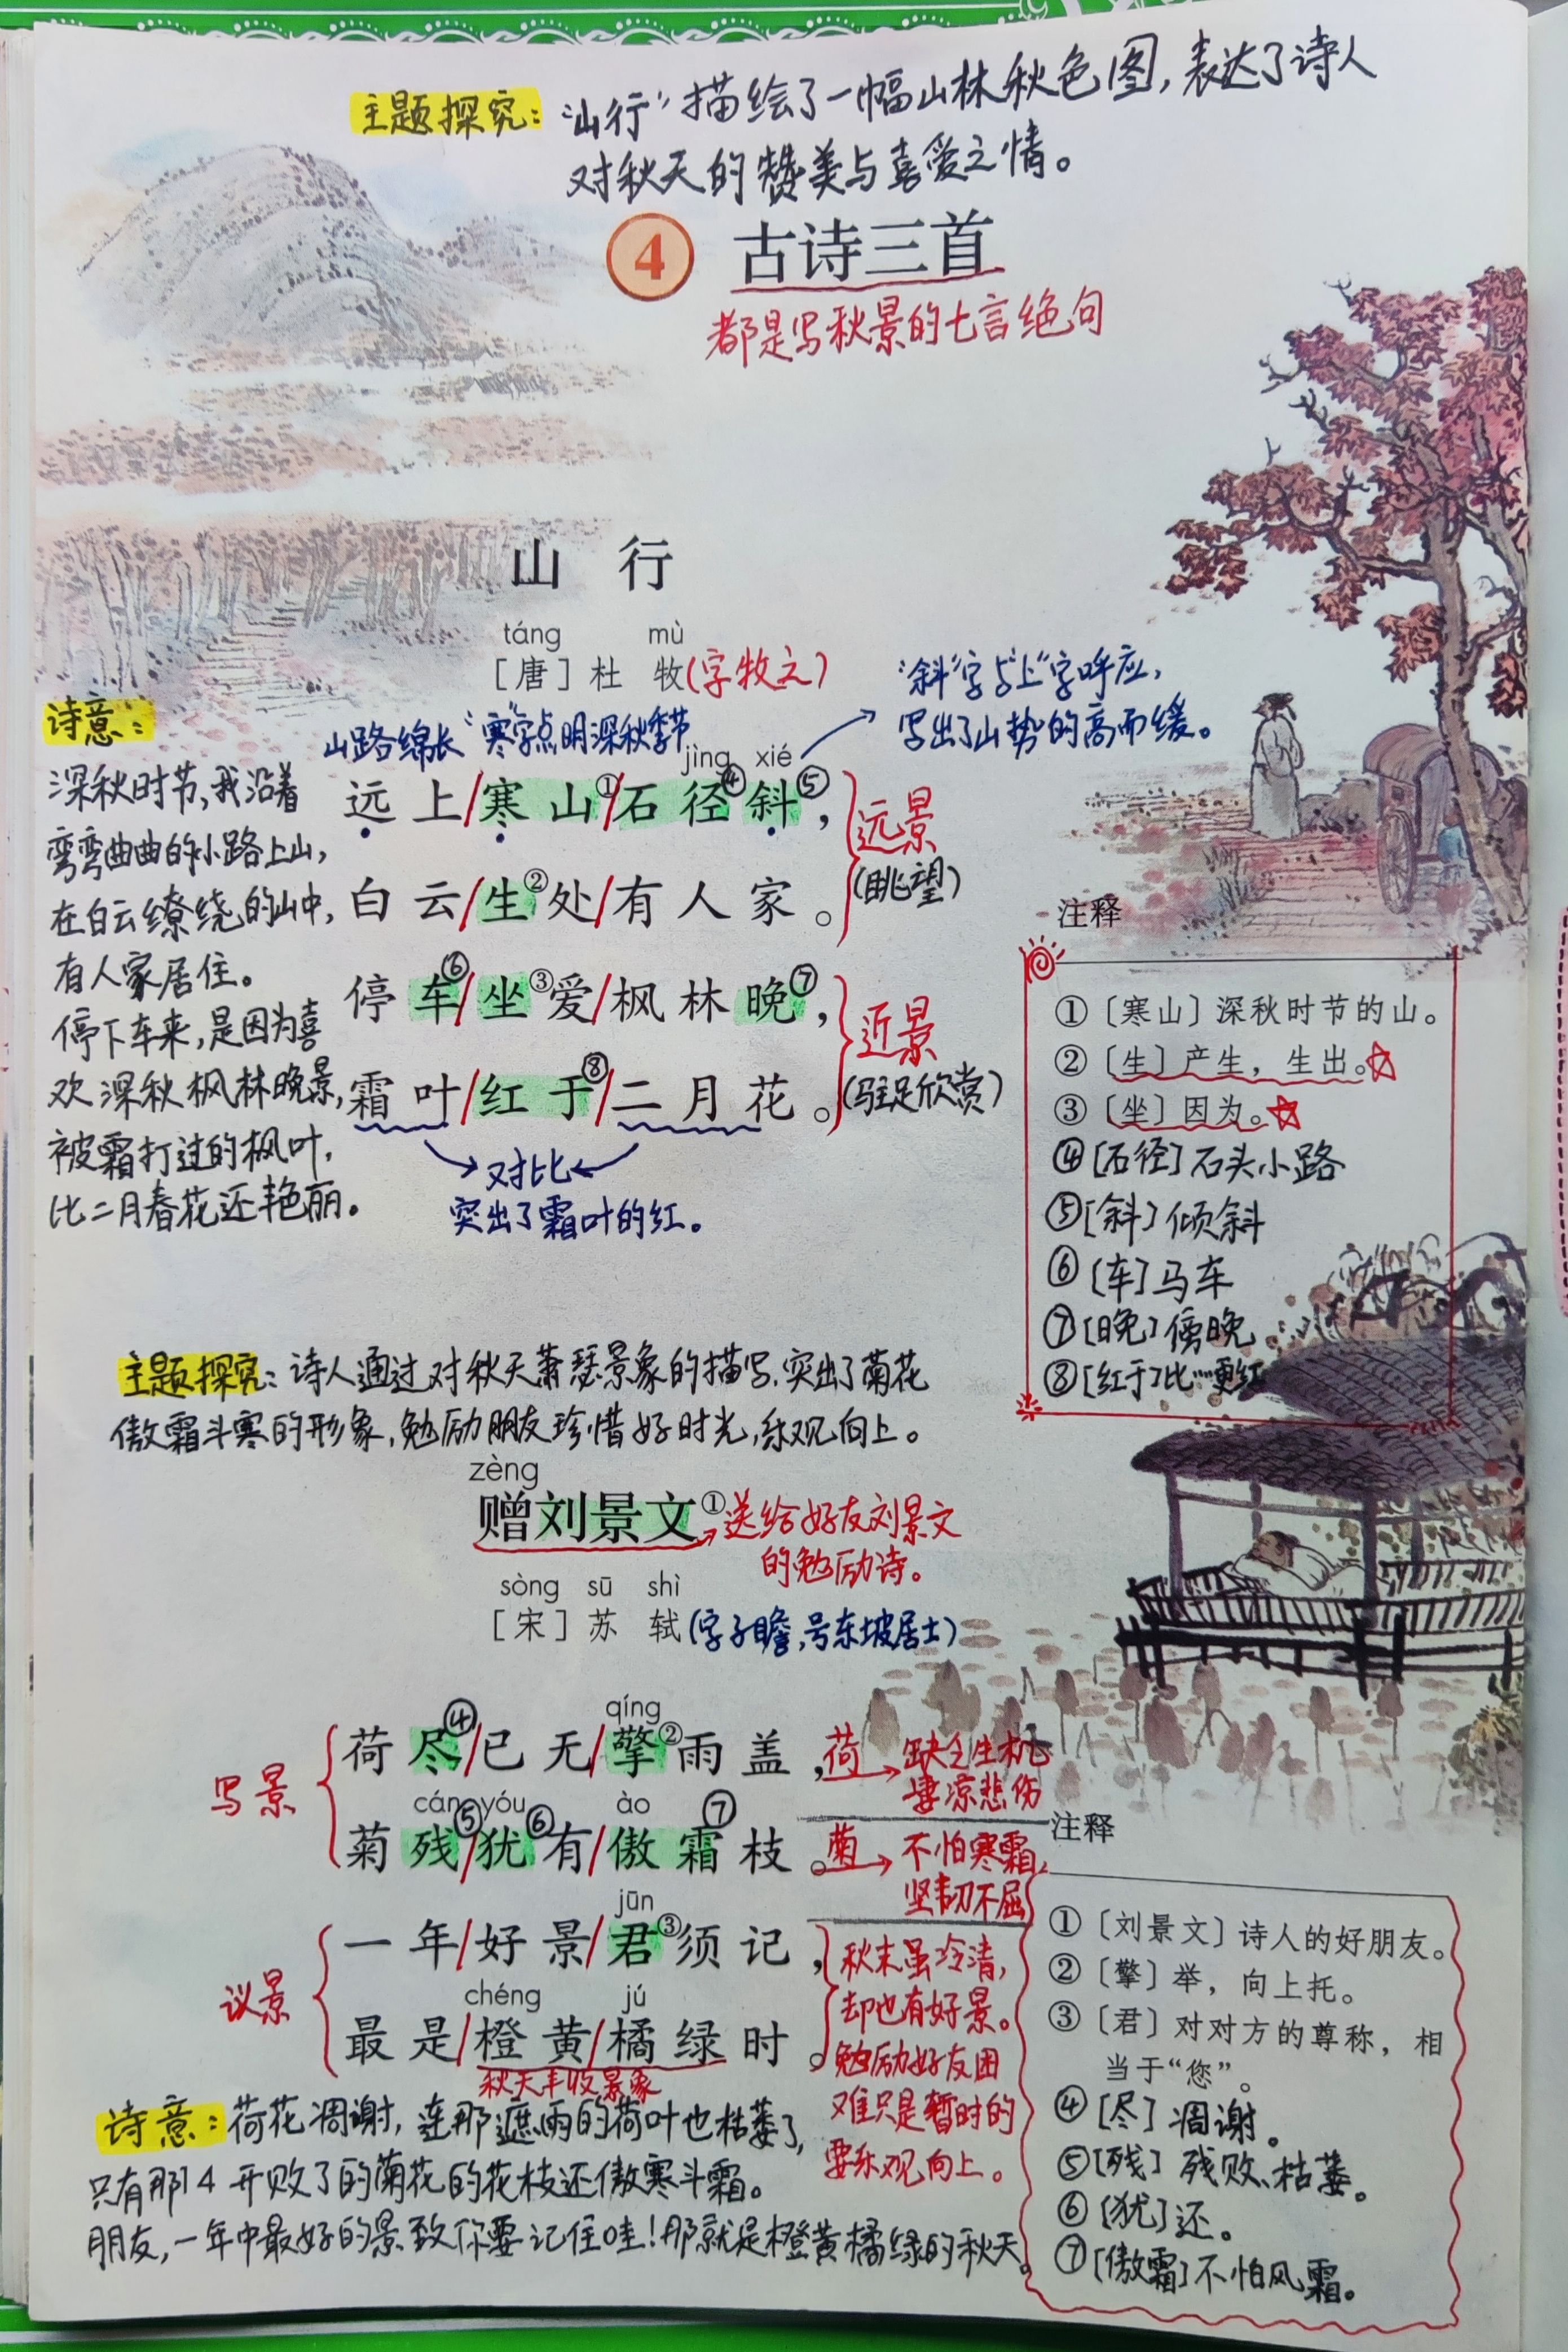 主题探究：“山行”描绘了一幅山林秋色图，表达了诗人
对秋天的赞美与喜爱之情。
④ 古诗三首
都是写秋景的七言绝句
山 行
táng mù
［唐］杜 牧(字牧之)
“斜”字与“上”字呼应，
写出了山势的高而缓。
山路绵长 “寒”字点明深秋季节
jìng xié
远上/寒山①/石径④斜⑤，
白云/生②处/有人家。
远景
(眺望)
停车⑥/坐③爱/枫林晚⑦，
霜叶/红于⑧/二月花。
近景
(驻足欣赏)
对比
突出了霜叶的红。
诗意：
深秋时节，我沿着
弯弯曲曲的小路上山，
在白云缭绕的山中，
有人家居住。
停下车来，是因为喜
欢深秋枫林晚景，
被霜打过的枫叶，
比二月春花还艳丽。
注释
①〔寒山〕深秋时节的山。
②〔生〕产生，生出。☆
③〔坐〕因为。☆
④[石径]石头小路
⑤[斜]倾斜
⑥[车]马车
⑦[晚]傍晚
⑧[红于]比……更红
主题探究：诗人通过对秋天萧瑟景象的描写，突出了菊花
傲霜斗寒的形象，勉励朋友珍惜好时光，乐观向上。
zèng
赠刘景文①→送给好友刘景文
的勉励诗。
sòng sū shì
［宋］苏 轼(字子瞻，号东坡居士)
写景
qíng
荷尽④/已无/擎②雨盖，
荷→缺乏生机
凄凉悲伤
cán yóu ào
菊残⑤/犹⑥有/傲霜⑦枝。
菊→不怕寒霜，
坚韧不屈
议景
jūn
一年/好景/君③须记，
chéng jú
最是/橙黄/橘绿时。
秋天丰收景象
秋末虽冷清，
却也有好景。
勉励好友困
难只是暂时的
要乐观向上。
诗意：荷花凋谢，连那遮雨的荷叶也枯萎了，
只有那4开败了的菊花的花枝还傲寒斗霜。
朋友，一年中最好的景致你要记住哇！那就是橙黄橘绿的秋天。
注释
①〔刘景文〕诗人的好朋友。
②〔擎〕举，向上托。
③〔君〕对对方的尊称，相
当于“您”。
④[尽]凋谢。
⑤[残]残败、枯萎。
⑥[犹]还。
⑦[傲霜]不怕风霜。